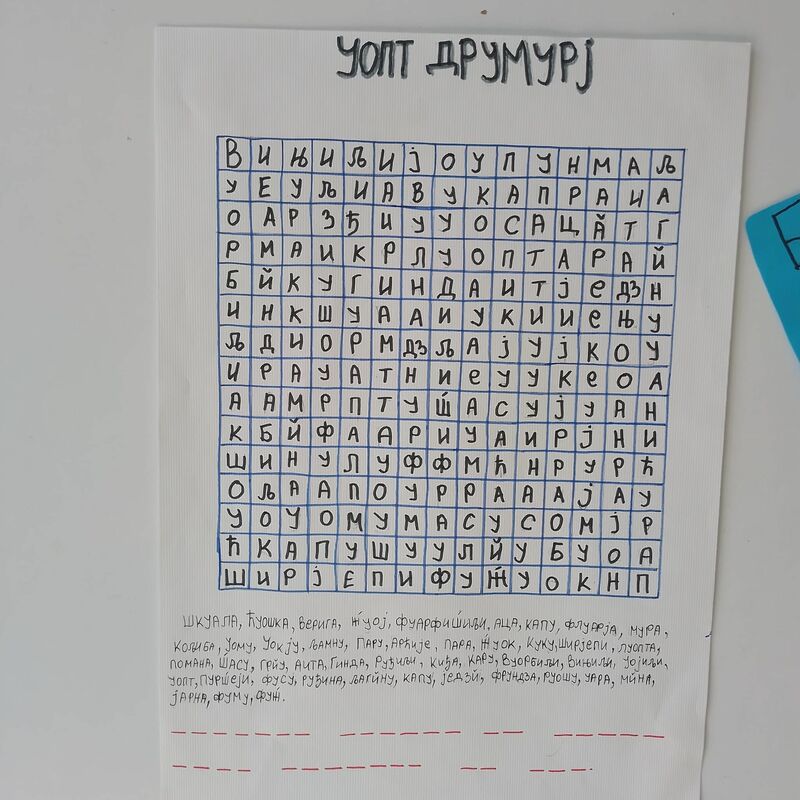 УОПТ ДРУМУРЈ
В И Њ И Љ И Ј О У П У Н М А Љ
У Е У Љ И А В У К А П Р А И А
О А Р З Ђ И У У О С А Ц Ӑ Т Г
Р М А И К Р Л У О П Т А Р А Й
Б Й К У Г И Н Д А И Т Ј Е ДЗ Н
И Н К Ш У А А И У К И И Е Њ У
Љ Д И О Р М ДЗ Љ А Ј У Ј К О У
И Р А У А Т Н И Е У У К Е О А
А А М Р П Т У Щ А С У Ј У А Н
К Б Й Ф А А Р И У А И Р Ј Н И
Ш И Н У Л У Ф Ф М Ћ Н Р У Р Ћ
О Љ А А П О У Р Р А А А Ј А У
У О У О М У М А С У С О М Ј Р
Ћ К А П У Ш У У Л Й У Б У О А
Ш И Р Ј Е П И Ф У Ӂ У О К Н П
ШКУАЛА, ЋУОШКА, ВЕРИГА, ФУАРФИШИЉИ, АЦА, КАПУ, ФЛУАРЈА, МУРА,
КОЛИБА, УОМУ, УОКЈУ, ЉАМНУ, ПАРУ, АРЂИЈЕ, ПАРА, КУКУ, ШИРЈЕПИ, ЛУОПТА,
ПОМАНА, ШАСУ, ГРЙУ, АИТА, ГИНДА, РУЂИЉИ, КИЂА, КАРУ, ВУОРБИЉИ, ВИЊИЉИ, УОЈИЉИ,
УОПТ, ПУРШЕЈИ, ФУСУ, РУЂИНА, ЉАГЙНУ, КАПУ, ЈЕДЗЙ, ФРУНДЗА, РУОШУ, УАРА, МЙНА,
ЈАРНА, ФУМУ, ФУЖ.